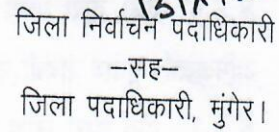 जिला निर्वाचन पदाधिकारी
-सह-
जिला पदाधिकारी, मुंगेर।